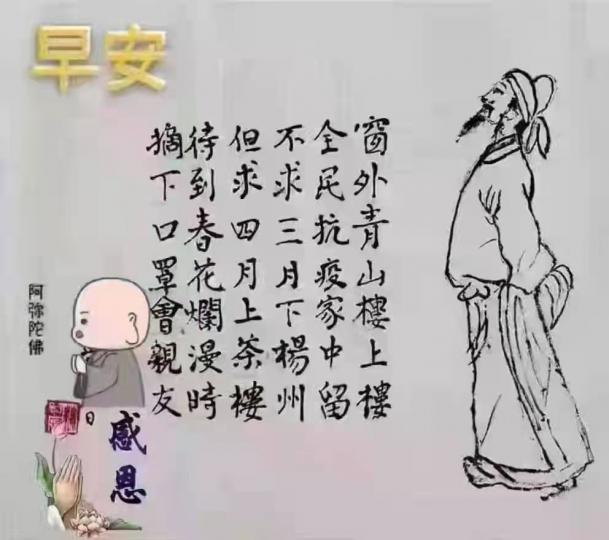 早安
窗外青山樓上樓
全民抗疫家中留
不求三月下楊州
但求四月上茶樓
待到春花爛漫時
摘下口罩會親友
阿弥陀佛
日
感恩